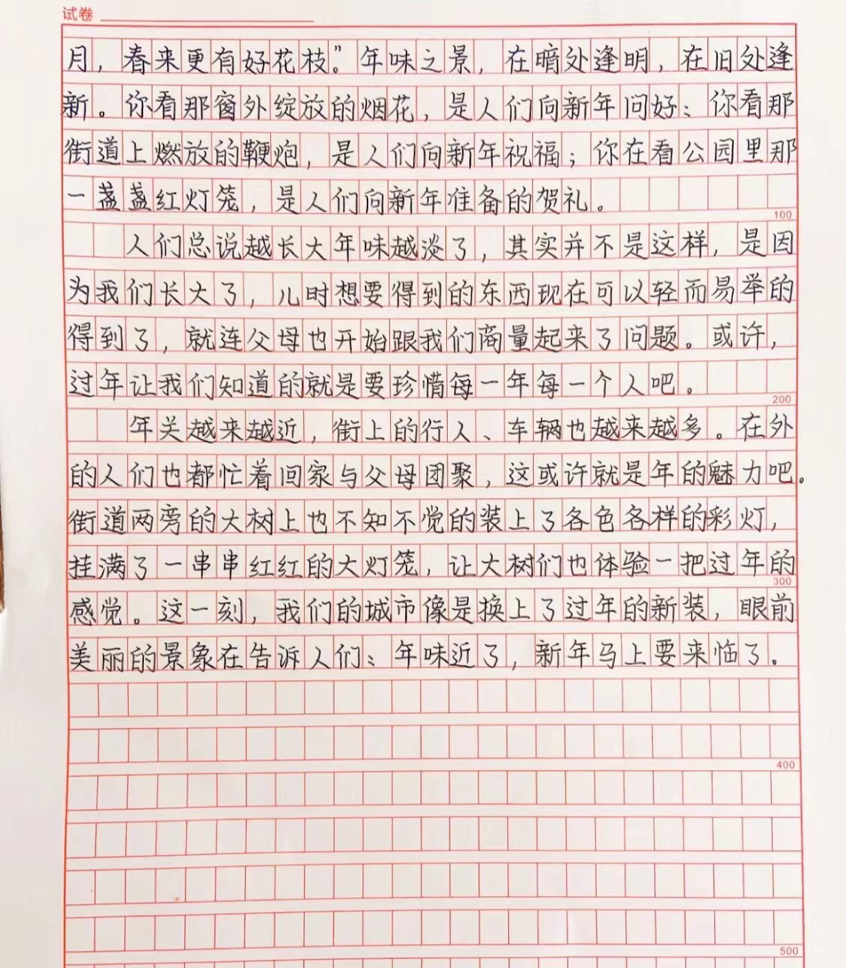 试卷
月，春来更有好花枝。”年味之景，在暗处逢明，在旧处逢
新。你看那窗外绽放的烟花，是人们向新年问好；你看那
街道上燃放的鞭炮，是人们向新年祝福；你在看公园里那
一盏盏红灯笼，是人们向新年准备的贺礼。
100
人们总说越长大年味越淡了，其实并不是这样，是因
为我们长大了，儿时想要得到的东西现在可以轻而易举的
得到了，就连父母也开始跟我们商量起来了问题。或许，
过年让我们知道的就是要珍惜每一年每一个人吧。
200
年关越来越近，街上的行人、车辆也越来越多。在外
的人们也都忙着回家与父母团聚，这或许就是年的魅力吧。
街道两旁的大树上也不知不觉的装上了各色各样的彩灯，
挂满了一串串红红的大灯笼，让大树们也体验一把过年的
300
感觉。这一刻，我们的城市像是换上了过年的新装，眼前
美丽的景象在告诉人们：年味近了，新年马上要来临了。
400
500